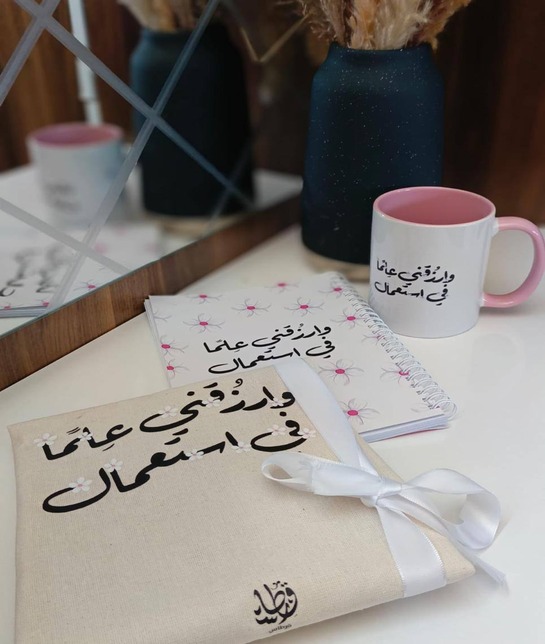 وارزُقَني عِلمًا
في استعمال
وارزُقَني عِلمًا
في استعمال
وارزُقَني عِلمًا
في استَعمال